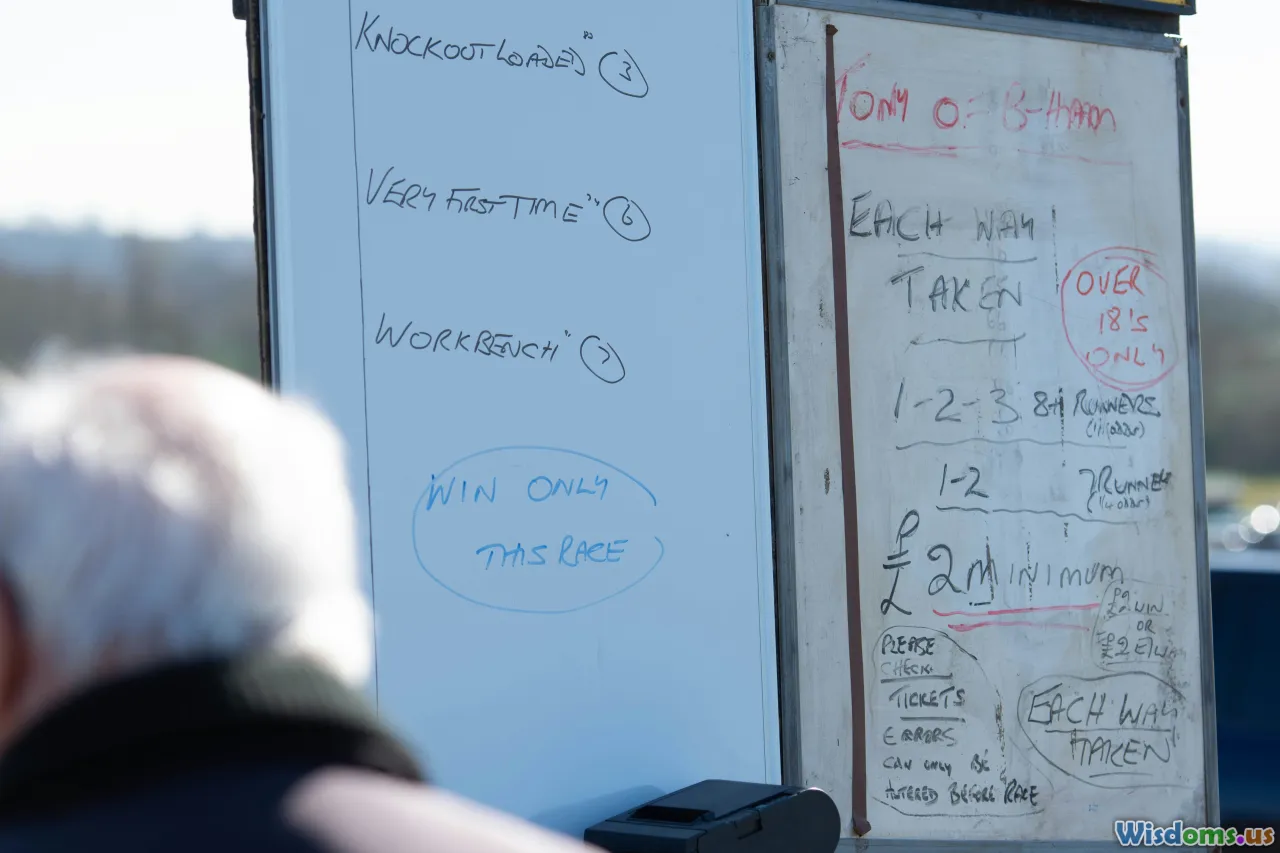 KNOCKOUT LOADED" 3
VERY FIRST TIME" 6
WORKBENCH" 7
WIN ONLY
THIS RACE
TONY O= B-HAM
EACH WAY
TAKEN
OVER
18'S
ONLY
1-2-3 8+ RUNNERS
1-2 7 RUNNER
(1/4 odds)
£2 MINIMUM
£2 WIN
OR
£2 E/W
PLEASE
CHECK
TICKETS
ERRORS
CAN ONLY BE
ALTERED BEFORE RACE
EACH WAY
TAKEN
Wisdoms.us